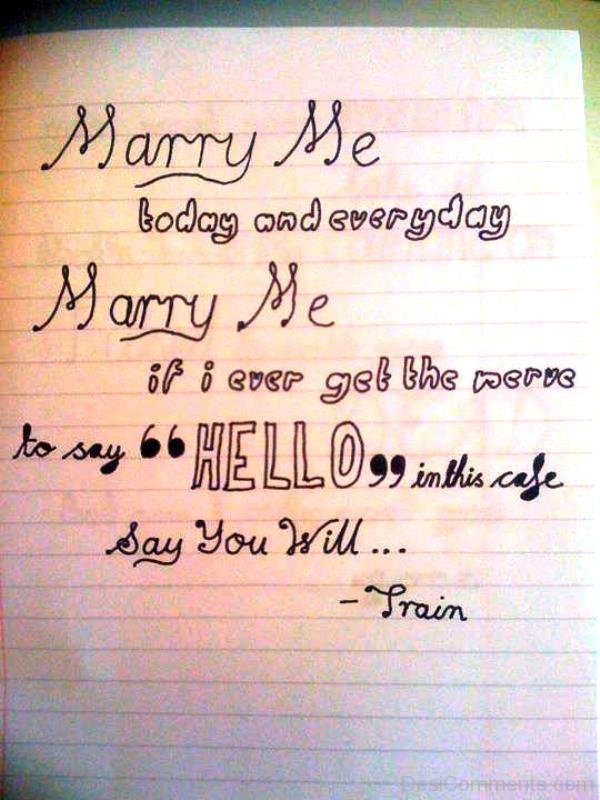 Marry Me
today and everyday
Marry Me
if i ever get the nerve
to say “HELLO„ in this cafe
Say You Will...
-Train
DesiComments.com